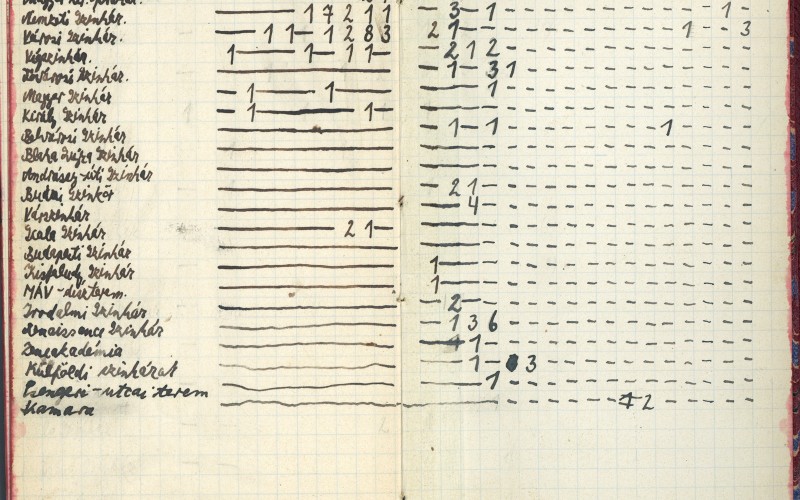 Nemzeti Színház. 1 7 2 1 1 3 1 1
Városi Színház. 1 1 1 2 8 3 2 1 1 3
Vígszínház. 1 1 1 1 2 1 2
Fővárosi Színház. 1 3 1
Magyar Színház 1 1 1
Király Színház 1 1
Belvárosi Színház 1 1 1
Blaha Lujza Színház
Andrássy-úti Színház
Budai Színkör 2 1
Várszínház 4
Scala Színház 2 1
Budapesti Színház
Kisfaludy Színház 1
MÁV-díszterem. 1
Irodalmi Színház 2
Renaissance Színház 1 3 6
Zeneakadémia 1
Külföldi színházak 1 3
Csengeri-utcai terem 1
Kamara 2